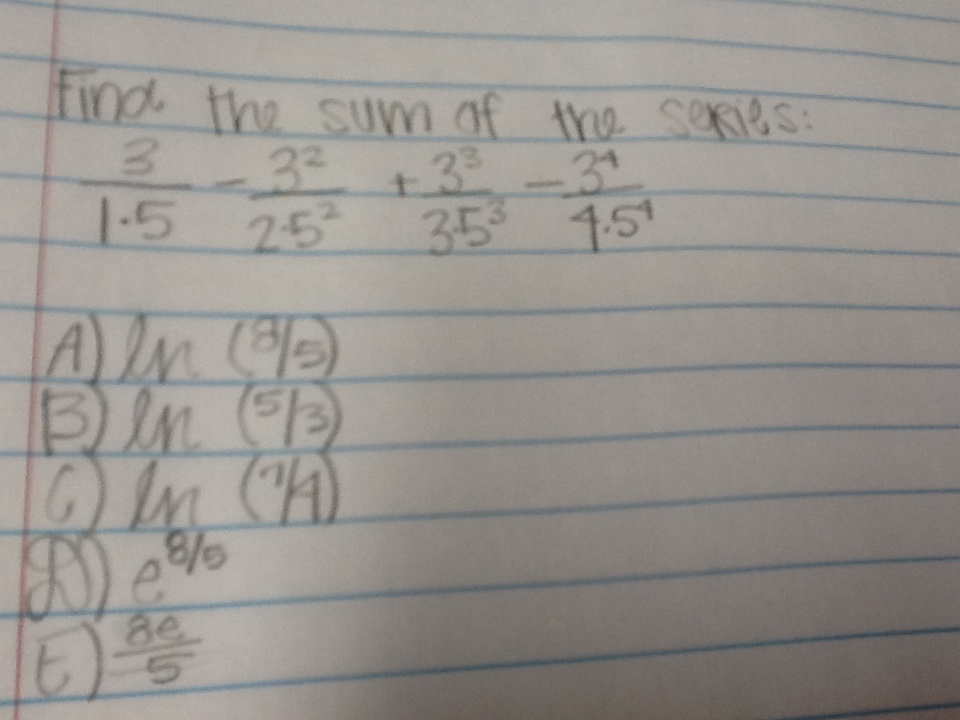 Find the sum of the series:
3/1·5 - 3²/2·5² + 3³/3·5³ - 3⁴/4·5⁴
A) ln (8/5)
B) ln (5/3)
C) ln (7/4)
D) e^8/5
E) 8e/5